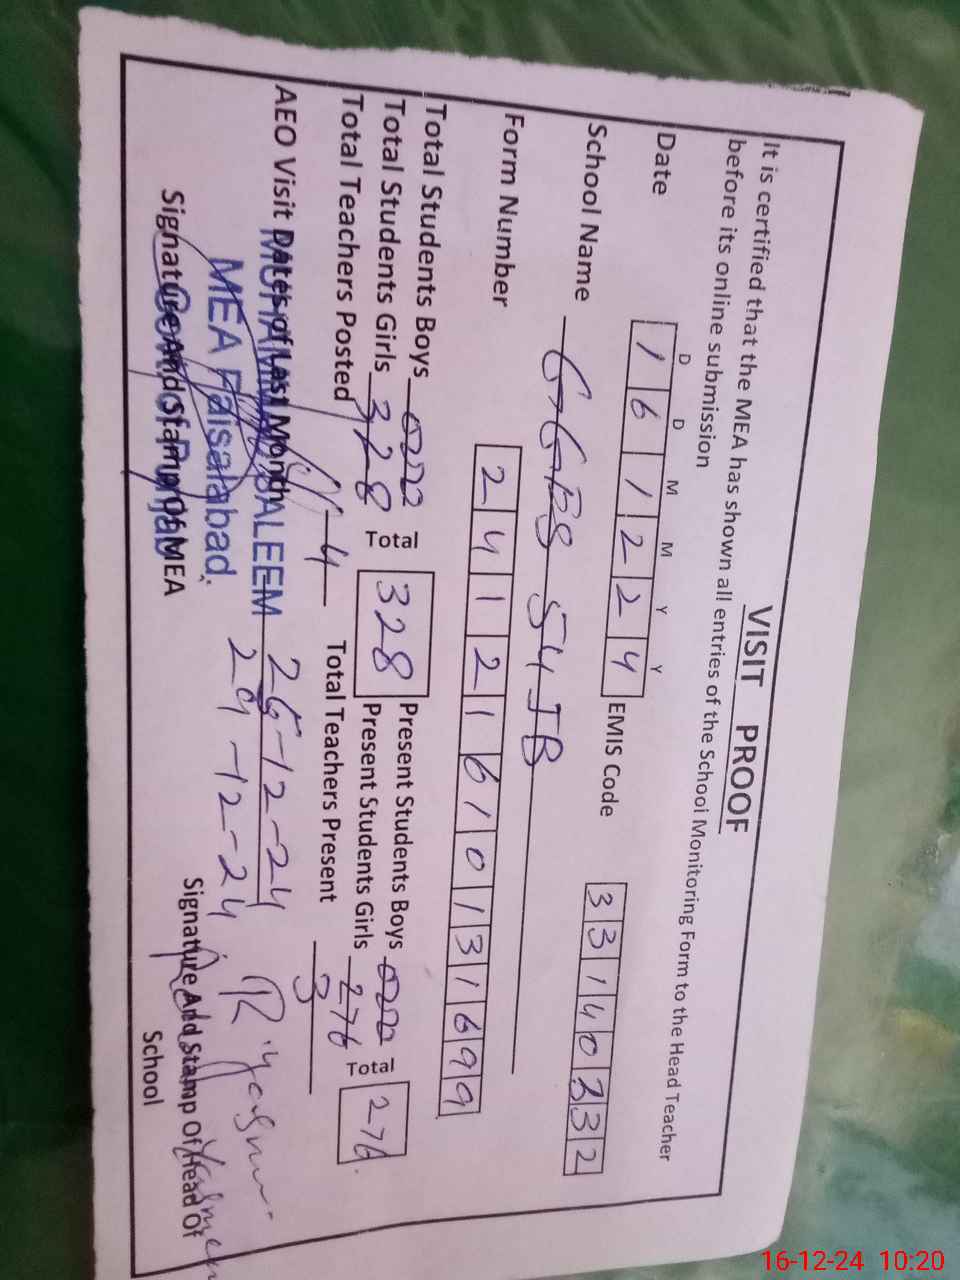 VISIT PROOF
It is certified that the MEA has shown all entries of the School Monitoring Form to the Head Teacher
before its online submission
D D M M Y Y
Date 1 6 1 2 2 4 EMIS Code 3 3 1 4 0 3 3 2
School Name GGPS 54 JB
Form Number 2 4 1 2 1 6 1 0 1 3 1 6 9 9
Total Students Boys Total 328 Present Students Boys Total 276
Total Students Girls 328 Present Students Girls 276
Total Teachers Posted 4 Total Teachers Present 3
AEO Visit Dates of Last Month 26-12-24
29-12-24
SALEEM
MEA Faisalabad.
Signature And Stamp Of MEA
Signature And Stamp Of Head Of
School
16-12-24 10:20